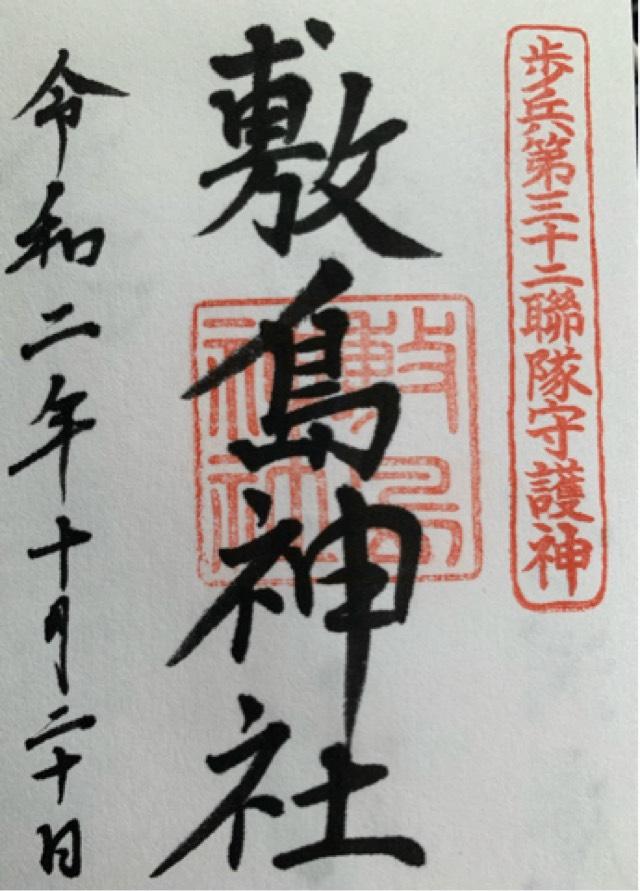 歩兵第三十二聯隊守護神
敷島神社
敷島神社
令和二年十月二十日